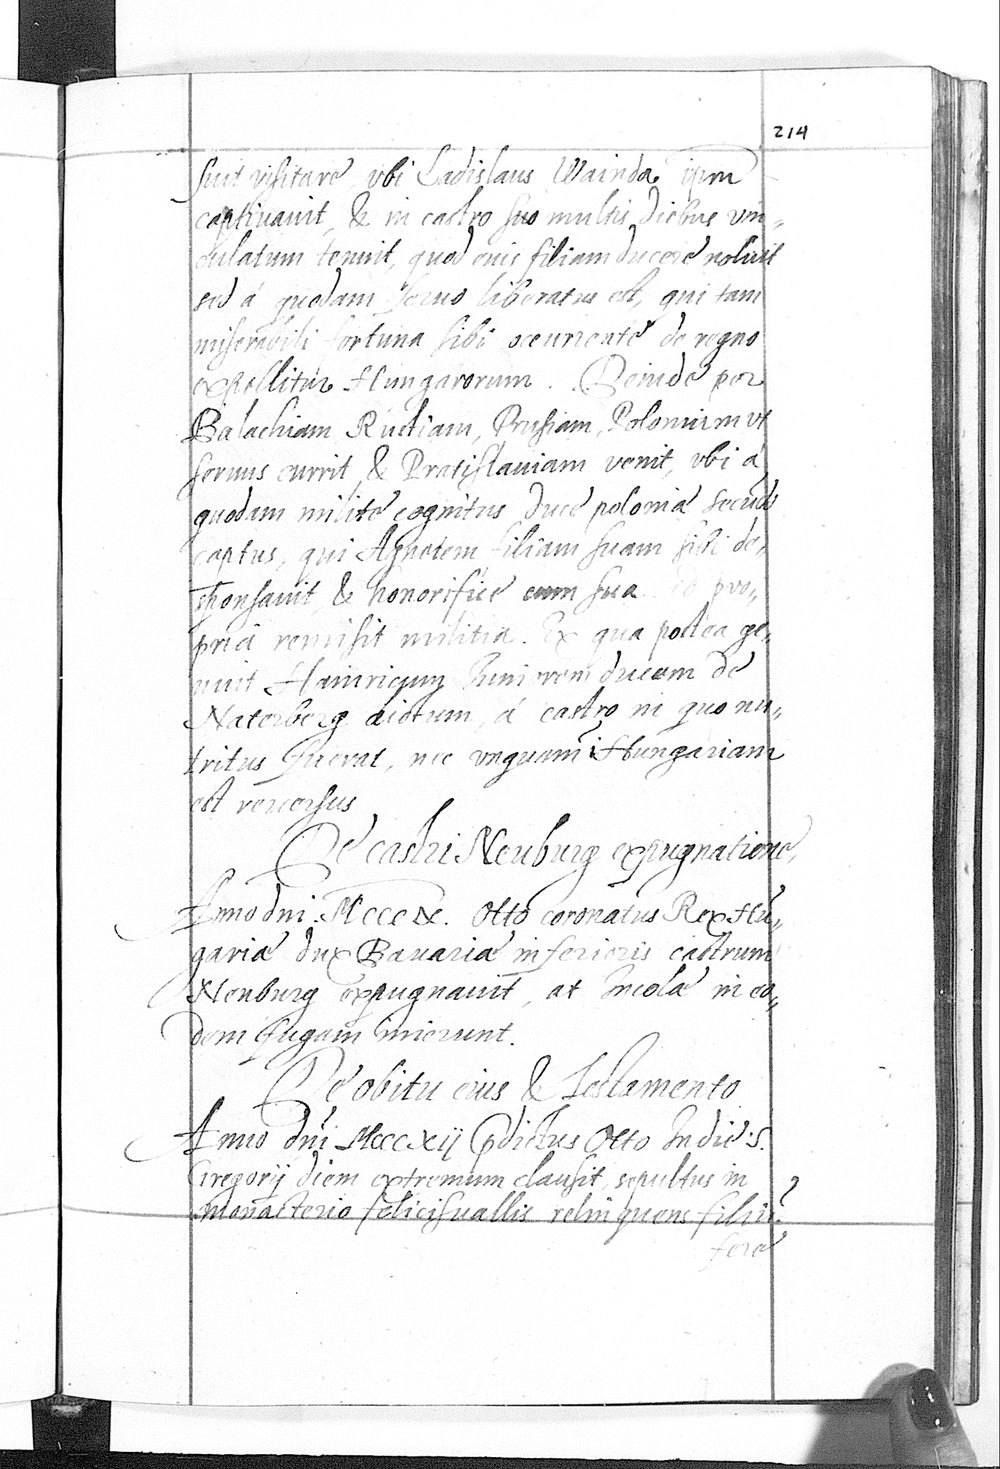 214
suit visitare vbi Ladislaus Wainda ipm
captiuauit, & in castro suo multis diebus vin„
culatum tenuit, quod eius filiam ducere noluit
sed á quodam seruo liberatus est, qui tam
miserabili fortuna sibi occurrente de regno
expellitur Hungarorum. Deinde per
Balachiam Ruthiam, Prussiam, Poloniam vt
seruus currit, & Pratislauiam venit, vbi á
quodam milite cognitus duce poloniæ
captus, qui Agnetem filiam suam sibi de„
sponsauit, & honorifice cum sua pro„
pria remisit militia. Ex qua postea ge„
nuit Hainricum Juniorem ducem de
Naterberg dictum, á castro in quo nu„
tritus fuerat, nec vnquam i Hungariam
est reuersus
De castri Neuburg expugnatione,
Anno dni. Mcccix. Otto coronatus Rex Hũ„
gariæ dux Bauariæ inferioris castrum
Neuburg expugnauit, at Incolæ in eo„
dem fugam inierunt.
De obitu eius & Testamento
Anno dñi Mcccxij pdictus Otto In die S.
Gregorij diem extremum clausit, sepultus in
monasterio felicisuallis relinquens filiũ
fere